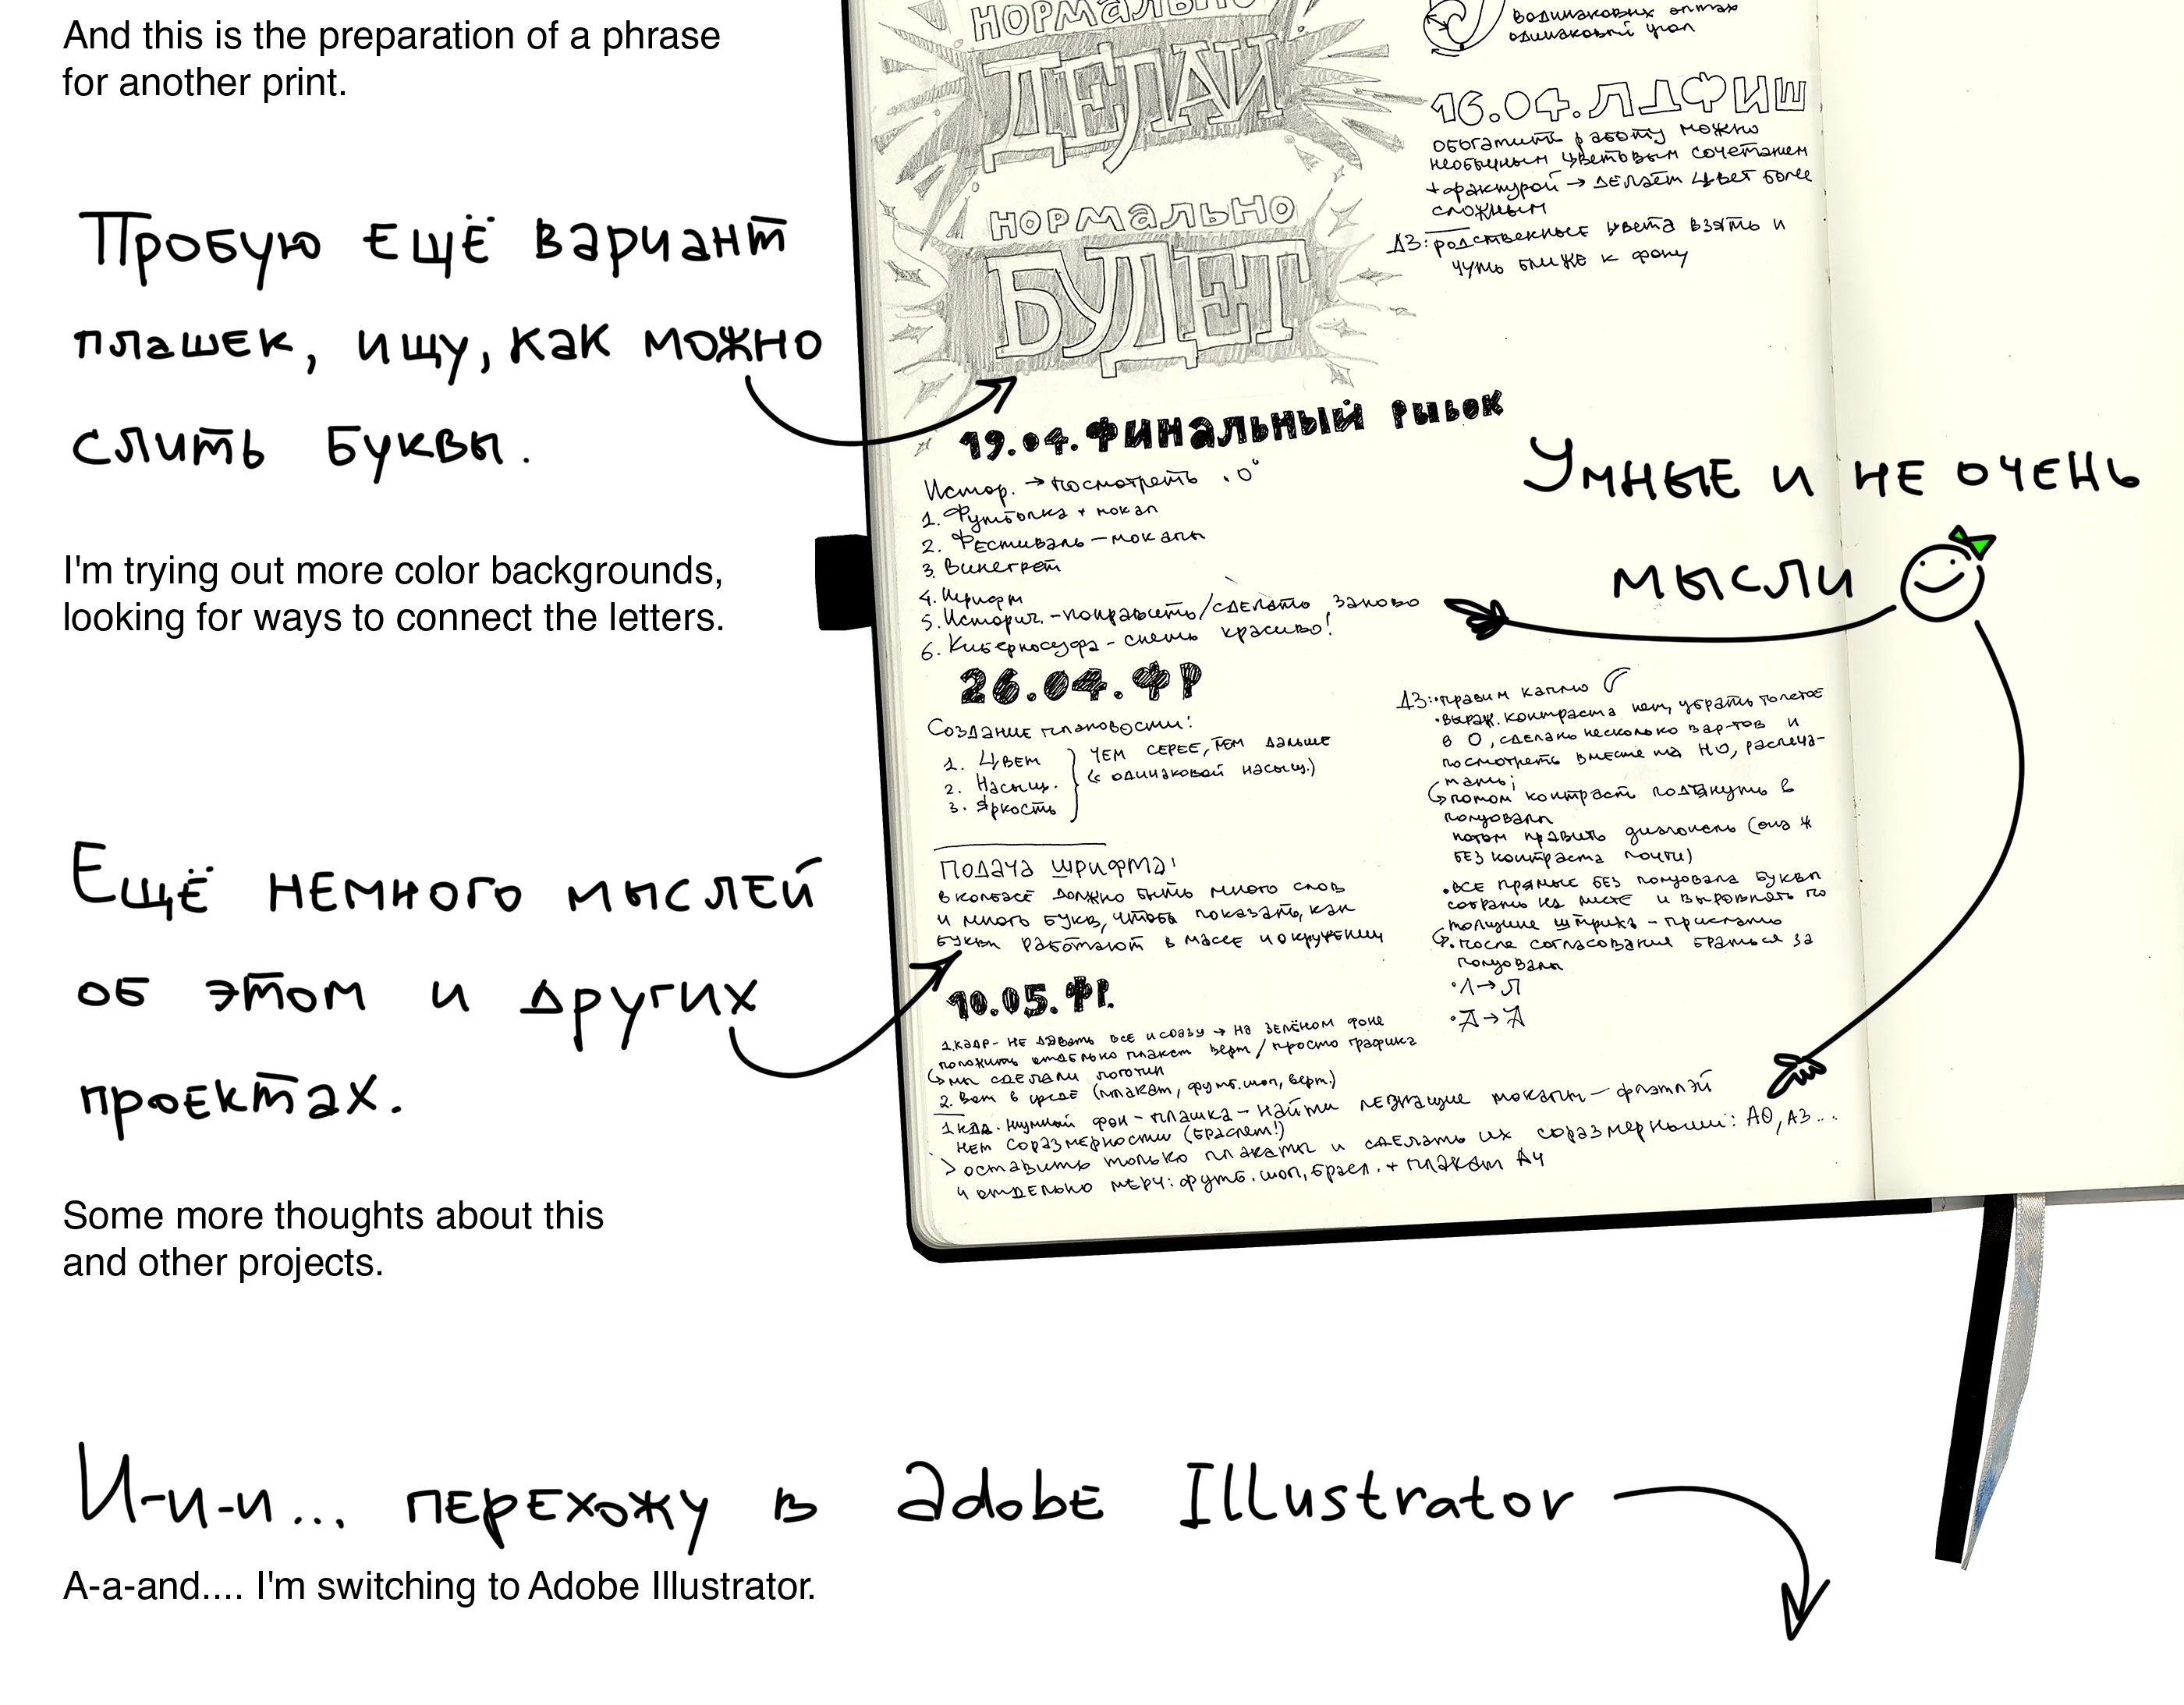 And this is the preparation of a phrase
for another print.
Пробую ещё вариант
плашек, ищу, как можно
слить буквы.
I'm trying out more color backgrounds,
looking for ways to connect the letters.
Ещё немного мыслей
об этом и других
проектах.
Some more thoughts about this
and other projects.
И-и-и... перехожу в Adobe Illustrator
A-a-and.... I'm switching to Adobe Illustrator.
НОРМАЛЬНО
ДЕЛАЙ
НОРМАЛЬНО
БУДЕТ
19.04. ФИНАЛЬНЫЙ РЫВОК
Истор. → посмотреть
1. Футболка + мокап
2. Фестиваль — мокапы
3. Винегрет
4. Шрифт
5. Историч. - поправить/сделать заново
6. - снять красиво!
26.04. ФР
Создание плановости:
1. Цвет
2. Насыщ.
3. Яркость
чем серее, тем дальше
(с одинаковой насыщ.)
Подача шрифта:
в колбасе должно быть много слов
и много букв, чтобы показать, как
буквы работают в массе и окружении
10.05. ФР.
1.кадр - не давать все и сразу → на зелёном фоне
положить отдельно плакат верт/просто графика
мы сделали логотип
2. Вот в среде (плакат, футб. шоп, верт.)
1 кад. шумный фон - плашка - найти лежащие мокапы — флэтлэй
нет соразмерности (браслет!)
> оставить только плакаты и сделать их соразмерными: А0, А3...
и отдельно мерч: футб. шоп, брасл. + плакат А4
одинаковый угол
16.04. ЛДФИШ
обогатить работу можно
необычным цветовым сочетанием
+ фактурой → делает цвет более
сложным
ДЗ: родственные цвета взять и
чуть ближе к фону
Умные и не очень
мысли
ДЗ: • правим каплю
• выраж. контраста нет, убрать толстое
в О, сделать несколько вар-тов и
посмотреть вместе на НО, распеча-
тать;
потом контраст подтянуть в
полуовалы
потом править диагональ (она ж
без контраста почти)
• все прямые без полуовала буквы
собрать на листе и выровнять по
толщине штриха - прислать
• после согласования браться за
полуовалы
• Л → Л
• Д → Д